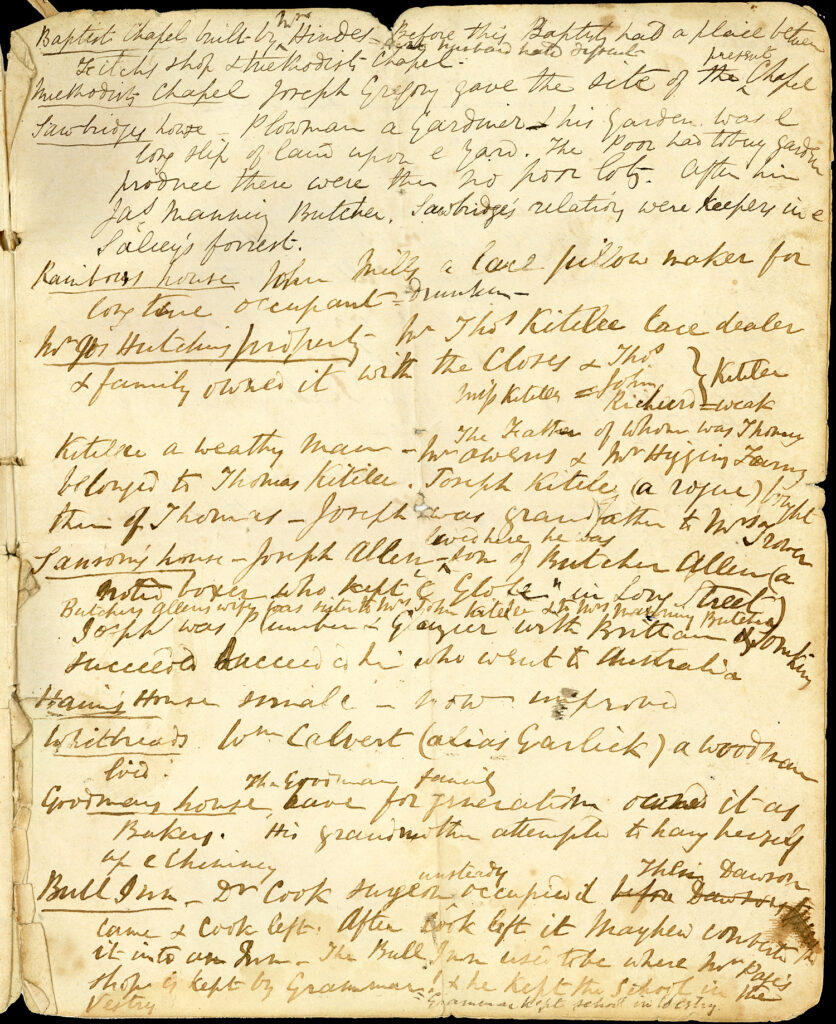 Baptist Chapel built by Mrs Hindes - Before this Baptists had a place between
husband had
Fitch's shop & Methodist Chapel.
Methodists Chapel Joseph Gregory gave the site of the present Chapel
Sawbridges house - Plowman a Gardiner & his Garden was e
long slip of land upon e Yard. The Poor had to buy garden
produce there were then no poor lots. After him
Jas Manning Butcher. Sawbridge's relations were keepers in e
Salcey's forrest.
Rainbows house John Mills a lace pillow maker for
long time occupant = drunken -
Hutchins property - Mr Thos Kitelee lace dealer
& family owned it with the Closes & Thos
Miss Kitelee = John } Kitelee
Richard = weak
The Father of whom was Thomas
Kitelee a weathy man - Mr Owens & Mr Higgins Farms
belonged to Thomas Kitelee. Joseph Kitelee (a rogue) bought
them of Thomas - Joseph was grandfather to Mrs
lived here he was
Sansom's house - Joseph Allen - son of Butcher Allen (a
noted boxer who kept "e Globe" in Long Street)
Butchers Allens wife was sister to Mrs John Kitelee & to Mrs Manning Butcher
Joseph was Plumber & Glazier with Brittain & Tomkins
succeeded succeeded him who went to Australia
House small - now improved
Whitbreads Wm Calvert (alias Garlick) a woodman
livd.
The Goodman family
Goodmans house have for generation owned it as
Bakers. His grandmother attempted to hang herself
up e Chimney
unsteady Then Dawson
Bull Inn - Dr Cook surgeon occupied it before Dawson
came & Cook left. After Cook left it Mayhew converted
it into an Inn - The Bull Inn used to be where Mr Page's
shop is kept by Grammar & he kept the School in the
Vestry Grammar kept school in Vestry